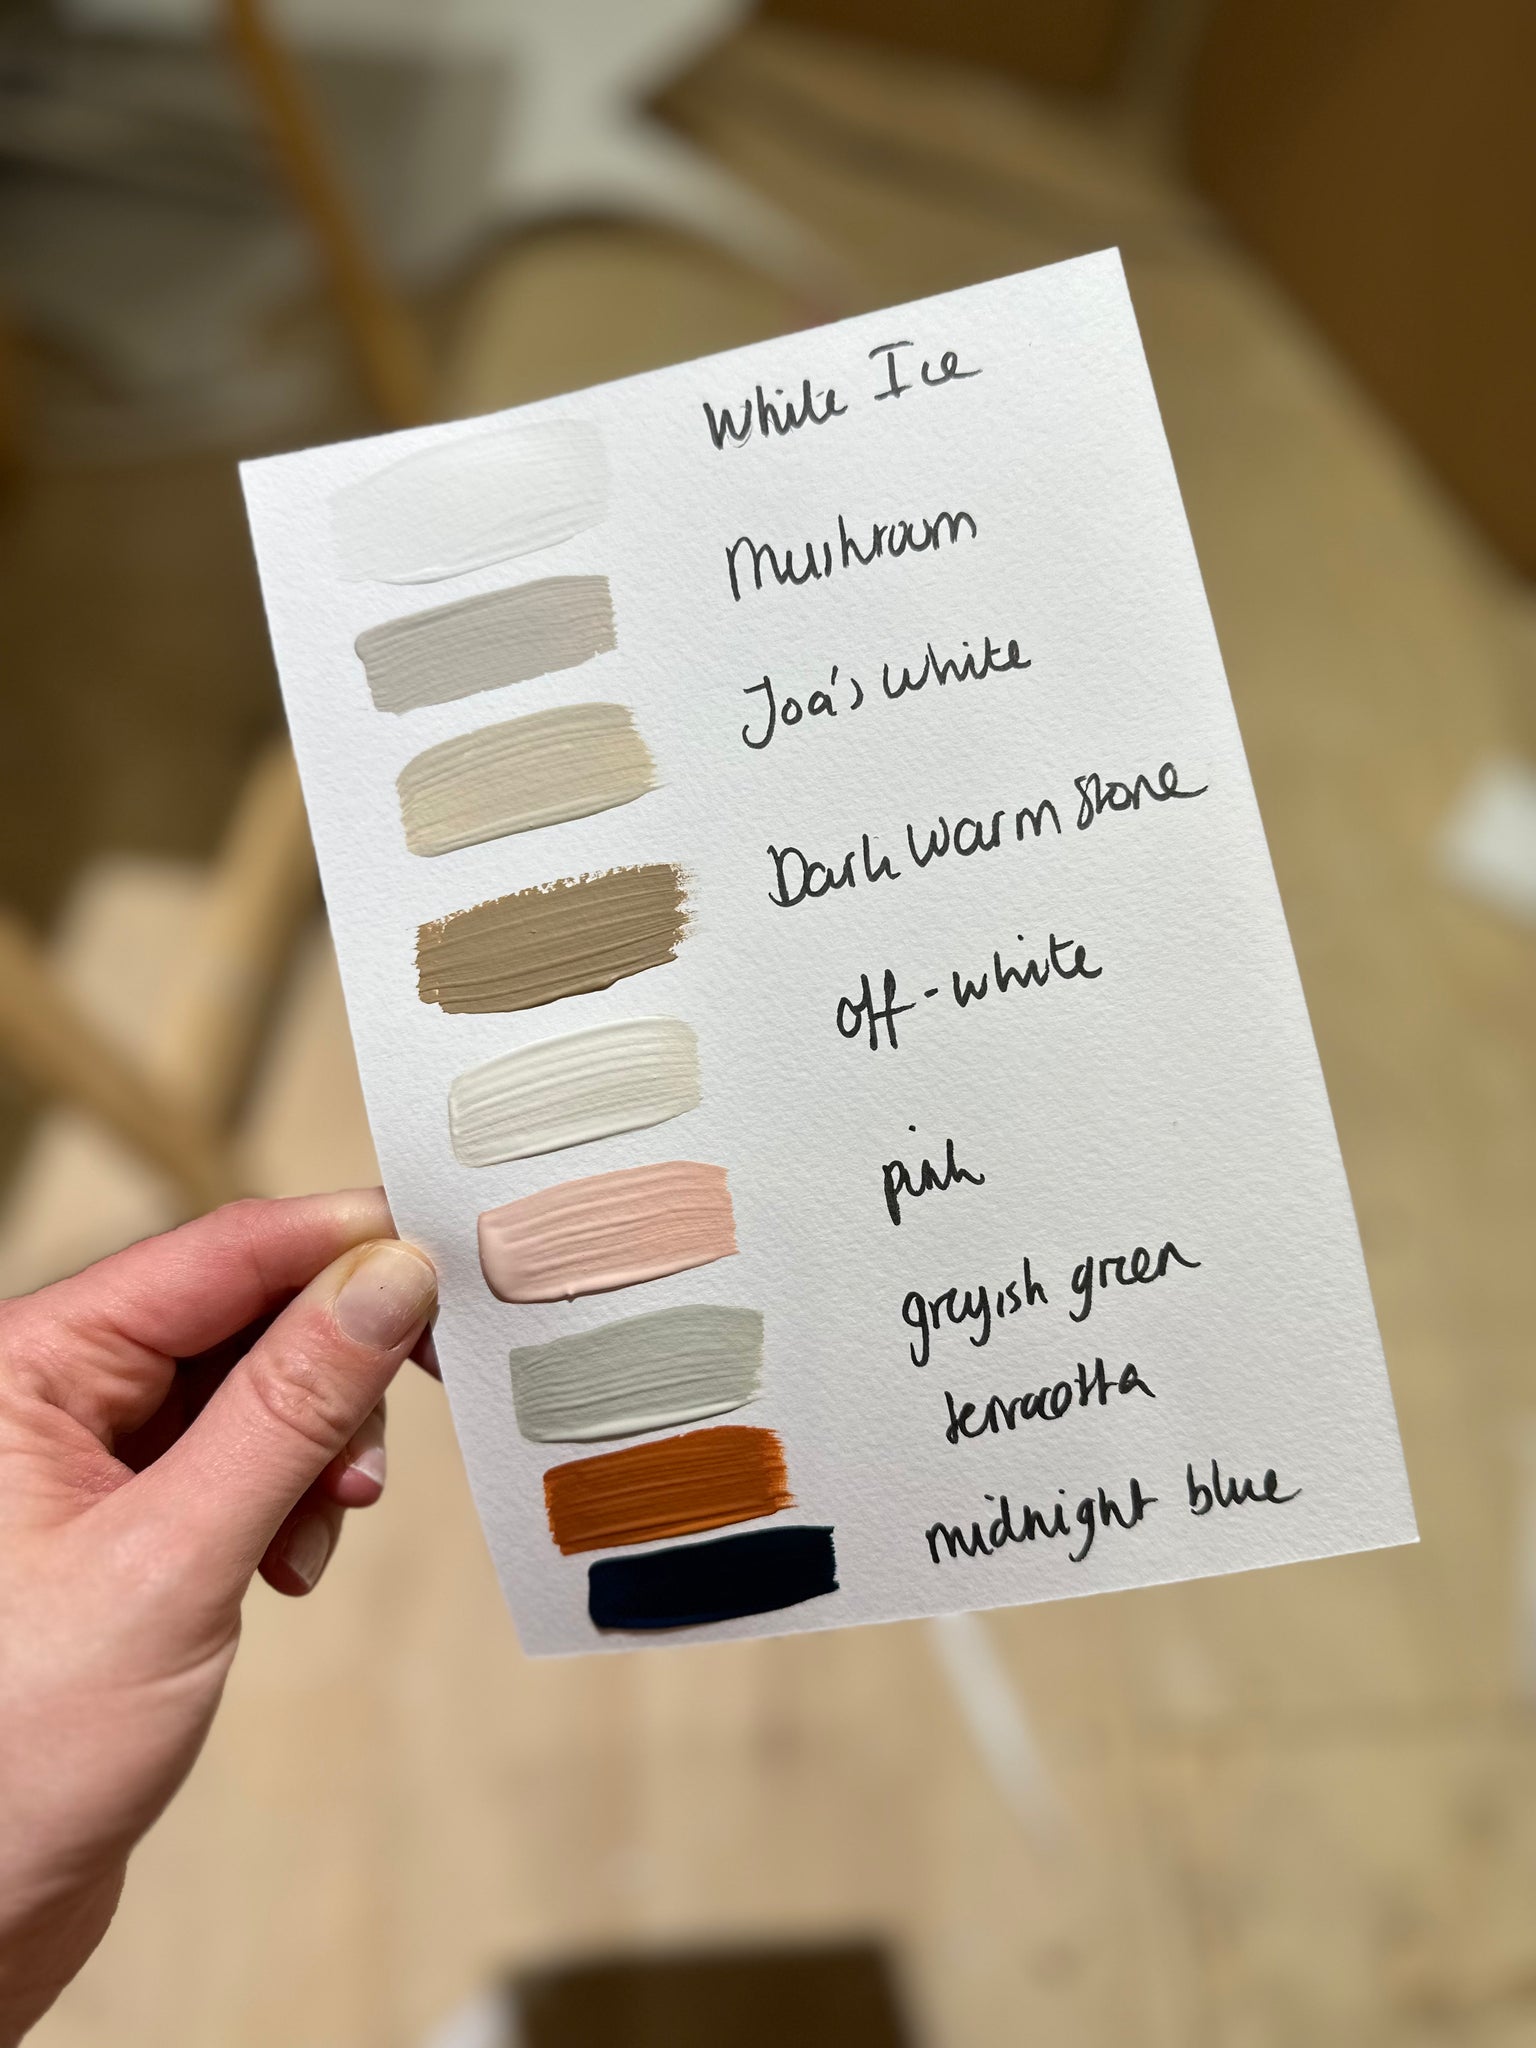 White Ice
Mushroom
Joa's white
Dark Warm Stone
off-white
pink
greyish green
terracotta
midnight blue